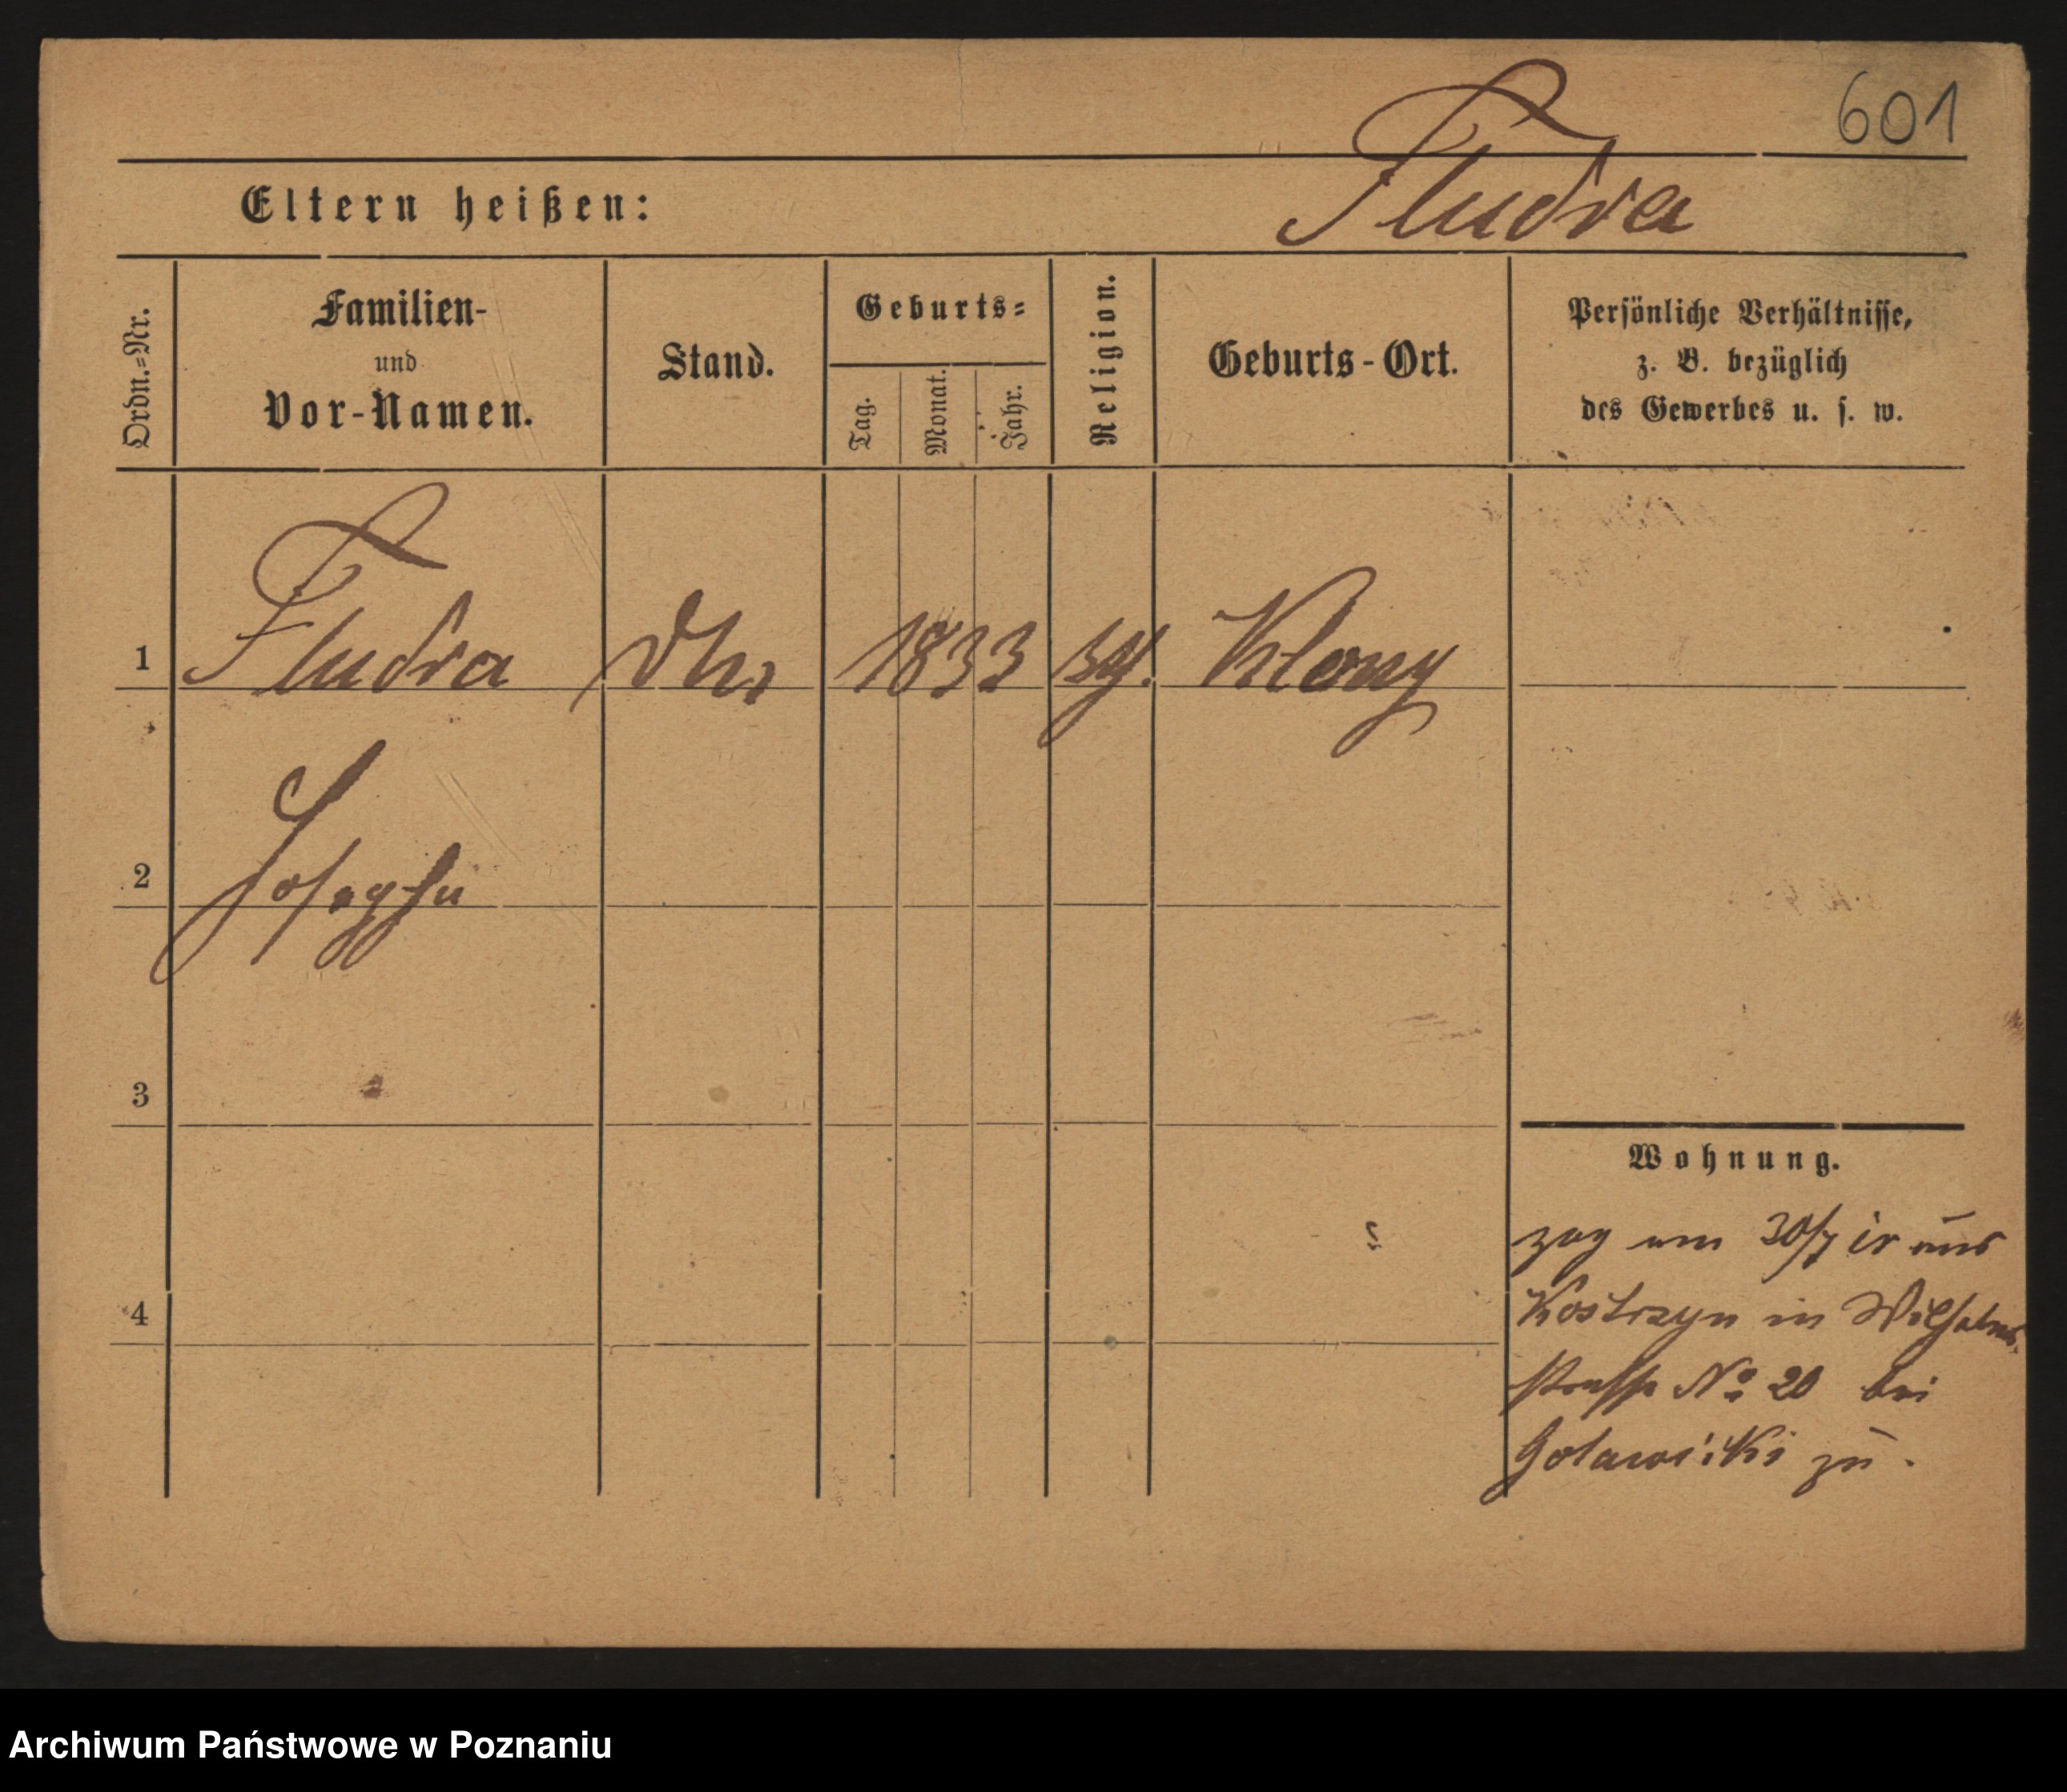 601
Fludra
Eltern heißen:
Ordn.=Nr.
Familien-
und
Vor-Namen.
Stand.
Geburts=
Tag.
Monat.
Jahr.
Religion.
Geburts-Ort.
Persönliche Verhältnisse,
z. B. bezüglich
des Gewerbes u. s. w.
1 Fludra 1833 Klony
2 Josepha
3
4
Wohnung.
zog am 30/7 cr aus
Kostrzyn in Wilhelms
strasse No 20 bei
zu.
Archiwum Państwowe w Poznaniu